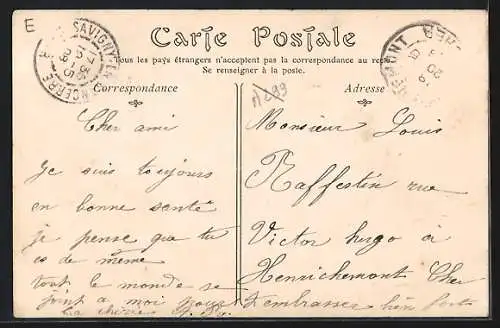 E
SAVIGNY-EN-SANCERRE
17 30
15 - 5
09
HENRICHEMONT CHER
Carte Postale
Tous les pays étrangers n'acceptent pas la correspondance au
Se renseigner à la poste.
Correspondance
Adresse
Cher ami
Je suis toujours
en bonne senté
je pense que tu
es de même
tout le monde se
joint a moi pour
Monsieur Louis
Raffestin rue
Victor hugo à
Henrichemont Cher
t'embrasser bien fort